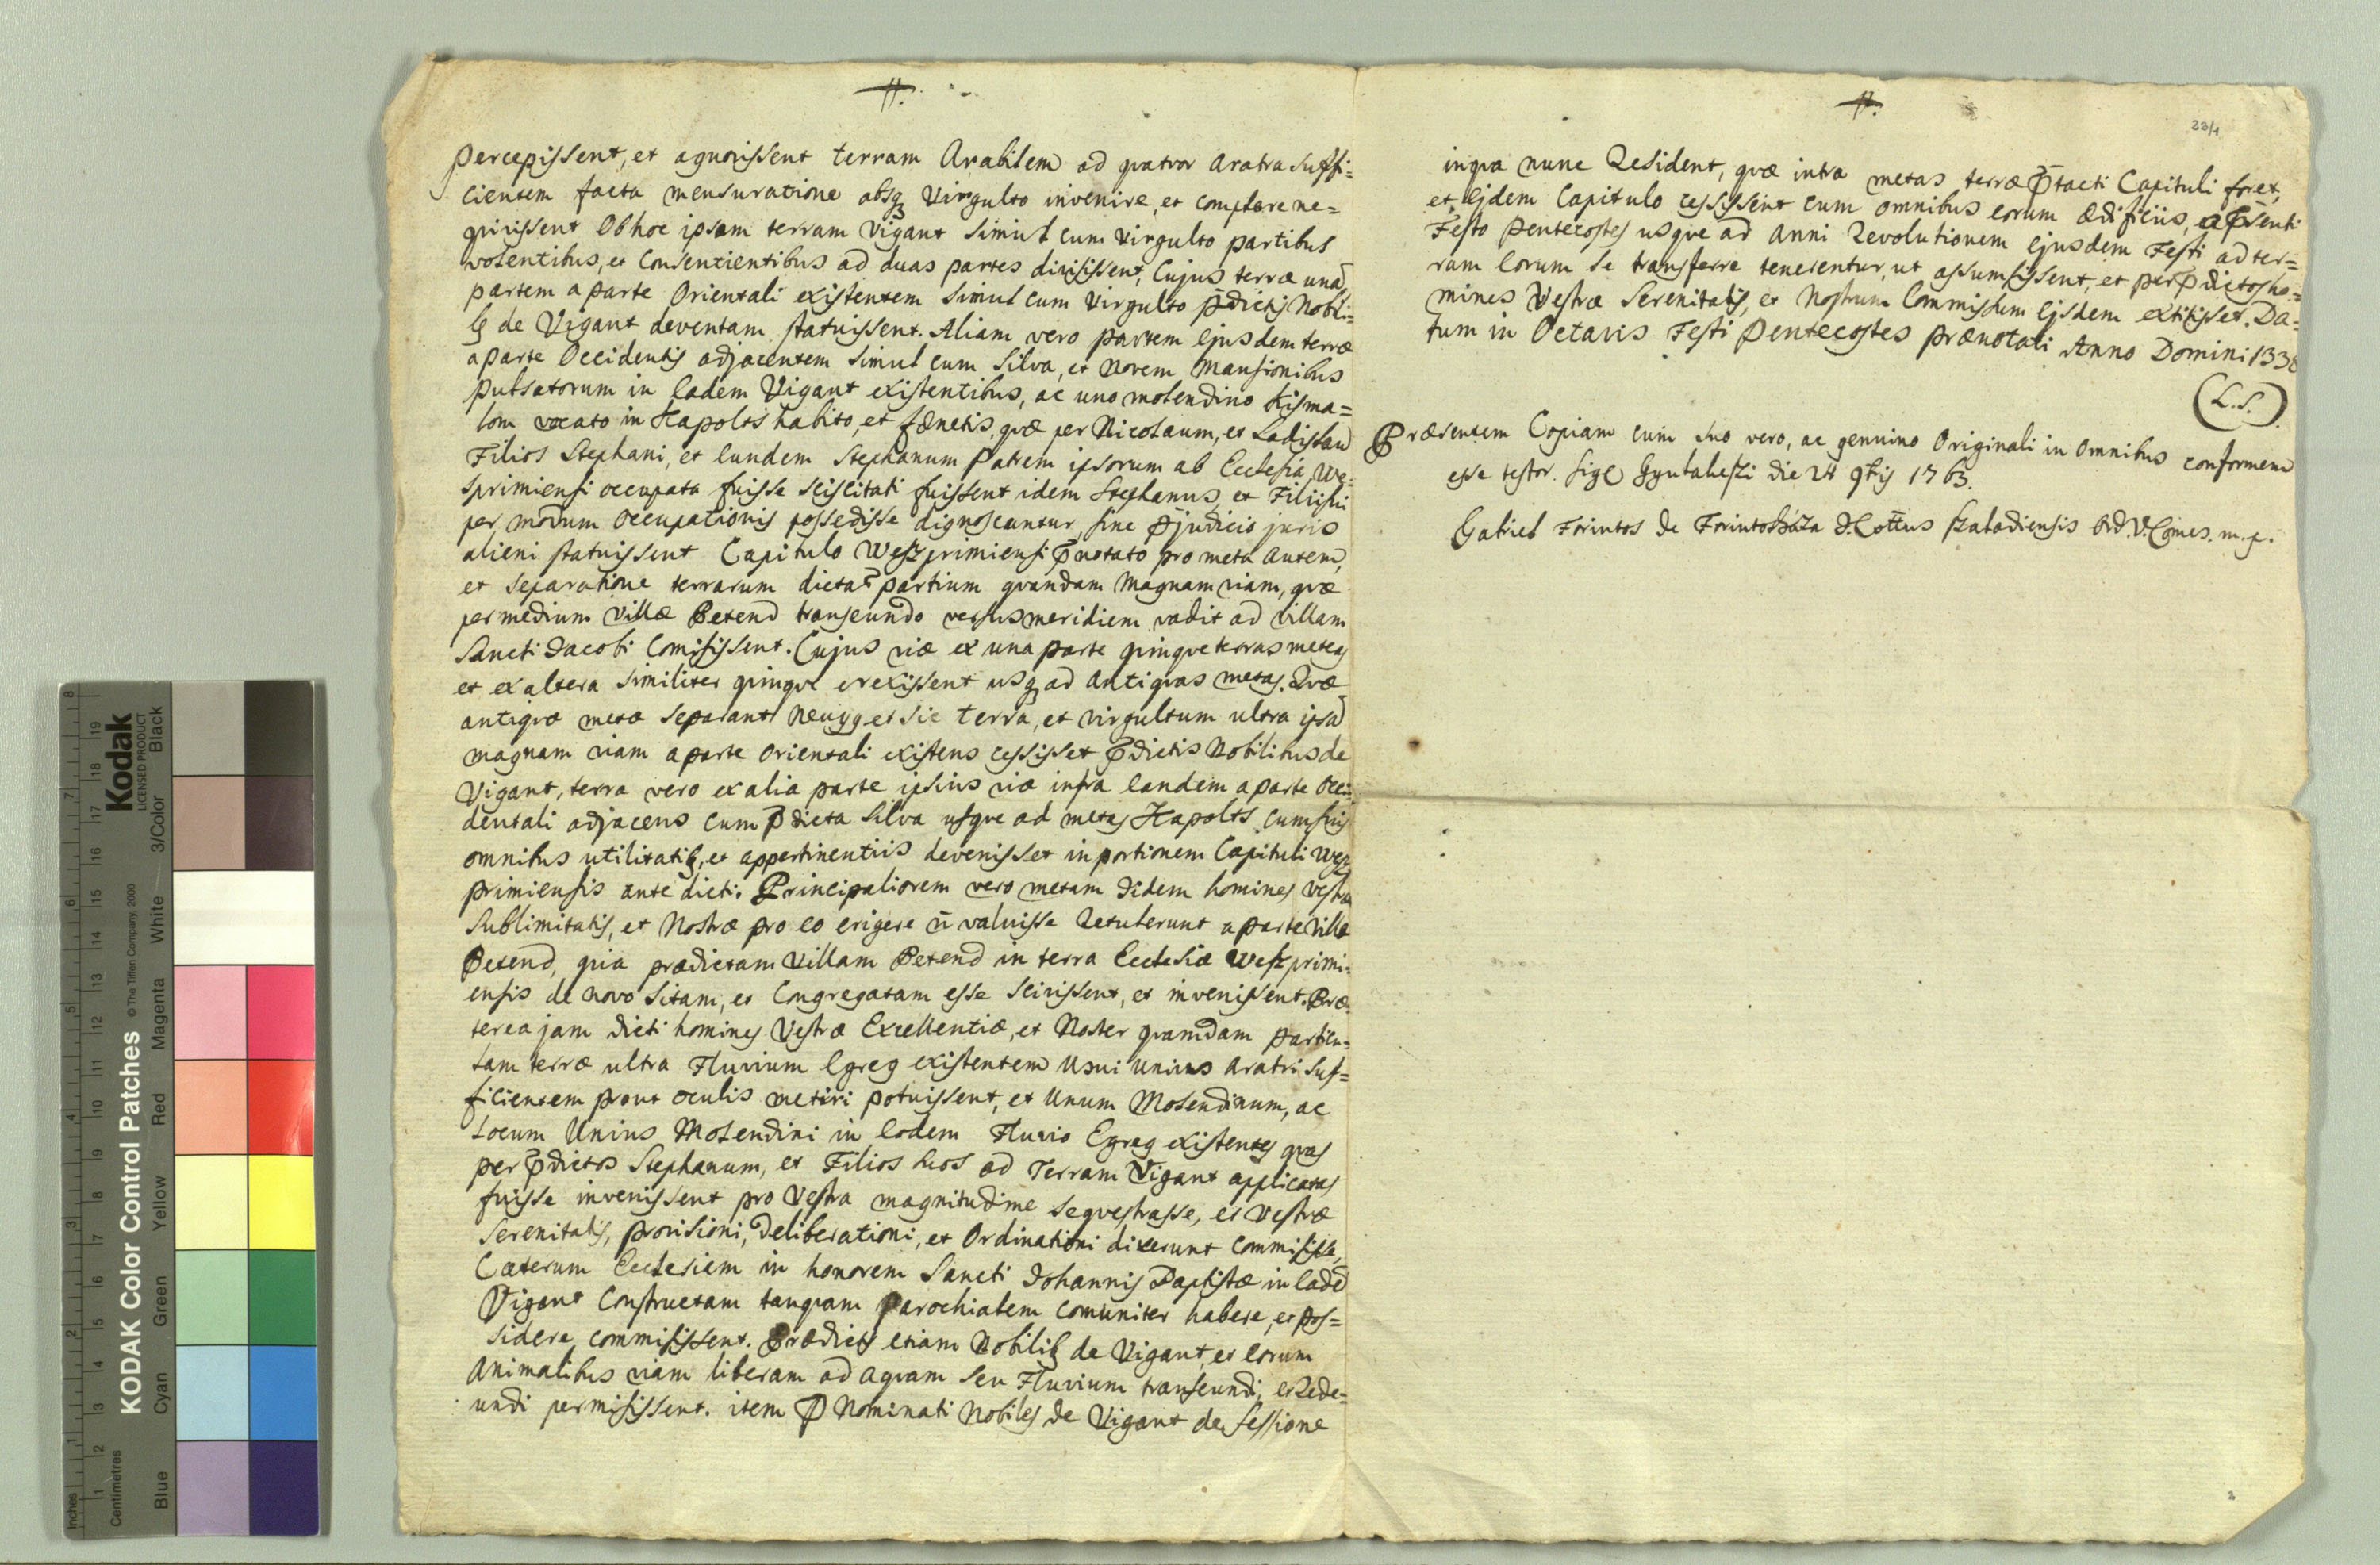 #.
percepissent, et agnovissent terram Arabilem ad qvatvor aratra suffi=
cientem facta mensuratione absq Virgulto invenire, et complere ne=
qvivissent Obhoc ipsam terram Vigant simul cum virgulto partibus
volentibus, et Consentientibus ad duas partes divisissent, Cujus terræ una
partem a parte Orientali existentem simul cum virgulto pdictis Nobili=
bq de Vigant deventam statuissent. Aliam vero partem Ejusdem terræ
a parte Occidentis adjacentem simul cum Silva, et Novem Mansionibus
pulsatorum in Eadem Vigant existentibus, ac uno molendino Kisma=
lom vocato in Kapolts habito, et fænetis, qvæ per Nicolaum, et Ladislau
Filios Stephani, et Eundem Stephanum Patrem ipsorum ab Ecclesia We=
sprimiensi occupata fuisse sciscitati fuissent idem Stephanus, et Filii sui
per modum Occupationis possedisse dignoscuntur, sine pjudicio juris
alieni statuissent Capitulo Weszprimiensi pnotato pro meta autem,
et separatione terrarum dictar partium qvandam Magnam viam, qvæ
per medium Villæ Petend transeundo versus meridiem vadit ad Villam
Sancti Jacobi Comisissent. Cujus viæ ex una parte qvinqve terras metas
et ex altera similiter qvinqve erexissent usq ad antiqvas metas. Qvæ
antiqvæ metæ separant Neugg et sic terra, et virgultum ultra ipsa
magnam viam a parte Orientali existens cessisset pdictis Nobilibus de
Vigant, terra vero ex alia parte ipsius viæ infra Eandem a parte Occi=
dentali adjacens cum pdicta Silva usqve ad metas Kapolts cum suis
omnibus utilitatibq, et appertinentiis devenisset in portionem Capituli Wesz
primiensis ante dicti. Principaliorem vero metam Iidem homines Vestræ
Sublimitatis, et Nostræ pro eo erigere n valuisse Retulerunt a parte Villæ
Petend, qvia prædictam Villam Petend in terra Ecclesiæ Weszprimi=
ensis de novo Sitam, et Congregatam esse scivissent, et invenissent. Præ=
terea jam dicti homines Vestræ Excellentiæ, et Noster qvamdam particu=
lam terræ ultra Fluvium Egreg existentem Usui Unius aratri suf=
ficientem prout oculis metiri potuissent, et Unum Molendinum, ac
Locum Unius Molendini in Eodem Fluvio Egreg existentes qvas
per pdictos Stephanum, et Filios suos ad Terram Vigant applicatas
fuisse invenissent pro Vestra magnitudine Seqvestrasse, et Vestræ
Serenitatis, provisioni, Deliberationi, et Ordinationi dixerunt commisisse,
Cæterum Ecclesiam in honorem Sancti Johannis Baptistæ in Eade
Vigant Constructam tanqvam Parochialem comuniter habere, et pos=
sidere commisissent. Prædictis etiam Nobilibq de Vigant, et Eorum
Animalibus viam liberam ad aqvam seu Fluvium transeundi, et Rede=
undi permisissent. item p Nominati Nobiles de Vigant de Sessione
#.
23/1
inqva nunc Resident, qvæ intra metas terræ ptacti Capituli foret,
et Ejdem Capitulo cessissent cum omnibus Eorum Ædificiis, a psenti
Festo Pentecostes usqve ad Anni Revolutionem Ejusdem Festi ad ter=
ram Eorum se transferre tenerentur, ut assumsissent, et per pdictos ho=
mines Vestræ Serenitatis, et Nostrum Commissum Ejsdem extitisset. Da=
tum in Octavis Festi Pentecostes prænotati Anno Domini 1338
(L.S.)
Præsentem Copiam cum suo vero, ac genuino Originali in Omnibus conformem
esse testor. Sigl Gyulakeszi die 24 9bris 1763.
Gabriel Forintos de Forintosháza I. Cottus Szaladiensis Ord. V. Comes. m. p.
2